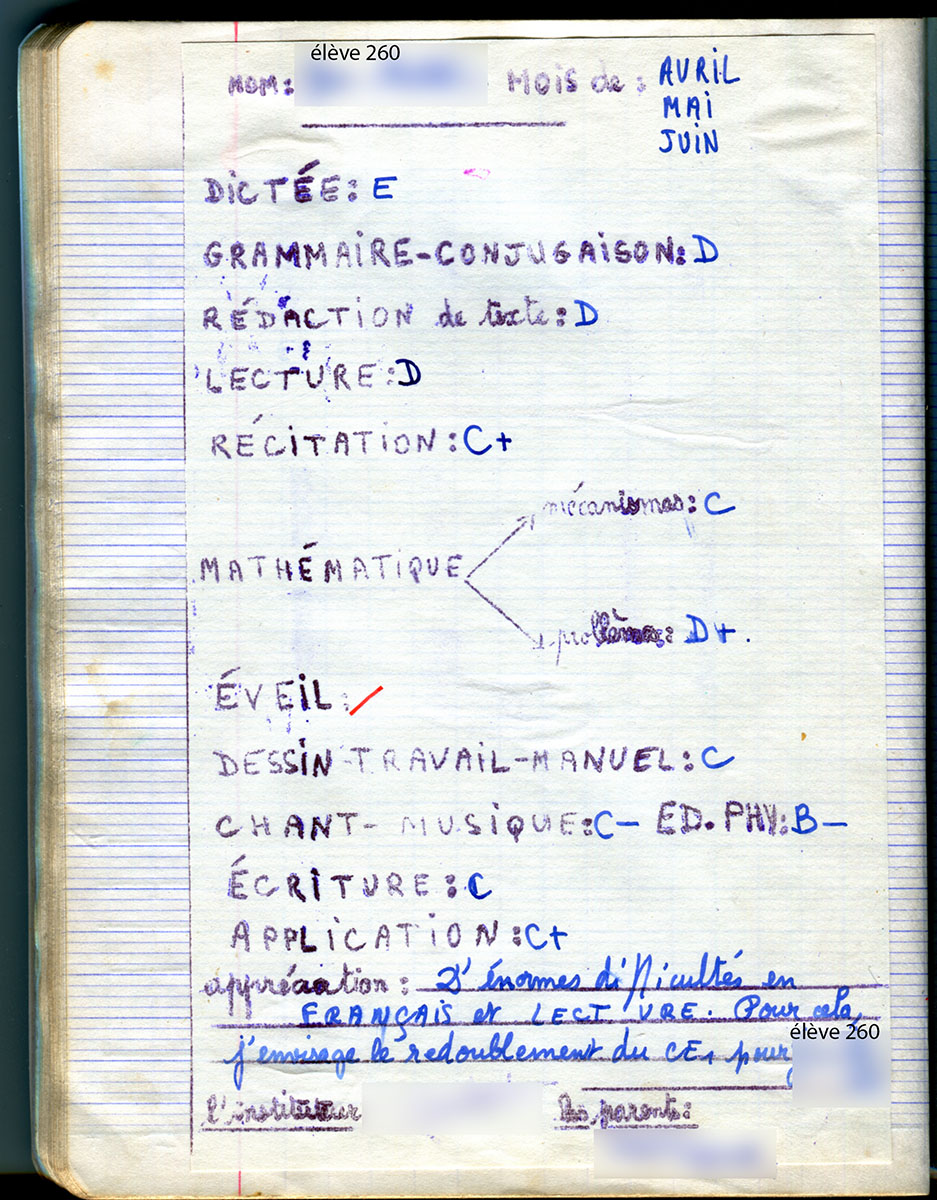 élève 260
NOM: MOIS de: AVRIL
MAI
JUIN
DICTÉE: E
GRAMMAIRE-CONJUGAISON: D
RÉDACTION de texte: D
LECTURE: D
RÉCITATION: C+
mécanismes: C
MATHÉMATIQUE
problèmes: D+.
ÉVEIL:
DESSIN-TRAVAIL-MANUEL: C
CHANT-MUSIQUE: C- ED. PHY: B-
ÉCRITURE: C
APPLICATION: C+
appréciation: D'énormes difficultés en
FRANÇAIS et LECTURE. Pour cela,
élève 260
j'envisage le redoublement du CE1 pour
l'instituteur Les parents: